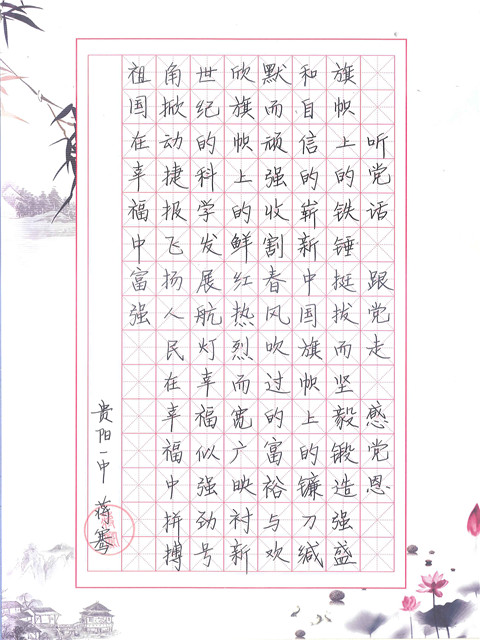 听党话 跟党走 感党恩
旗帜上的铁锤挺拔而坚毅锻造强盛
和自信的崭新中国旗帜上的镰刀缄
默而顽强收割春风吹过的富裕与欢
欣旗帜上的鲜红热烈而宽广映衬新
世纪的科学发展航灯幸福似强劲号
角掀动捷报飞扬人民在幸福中拼搏
祖国在幸福中富强
贵阳一中 蒋骞